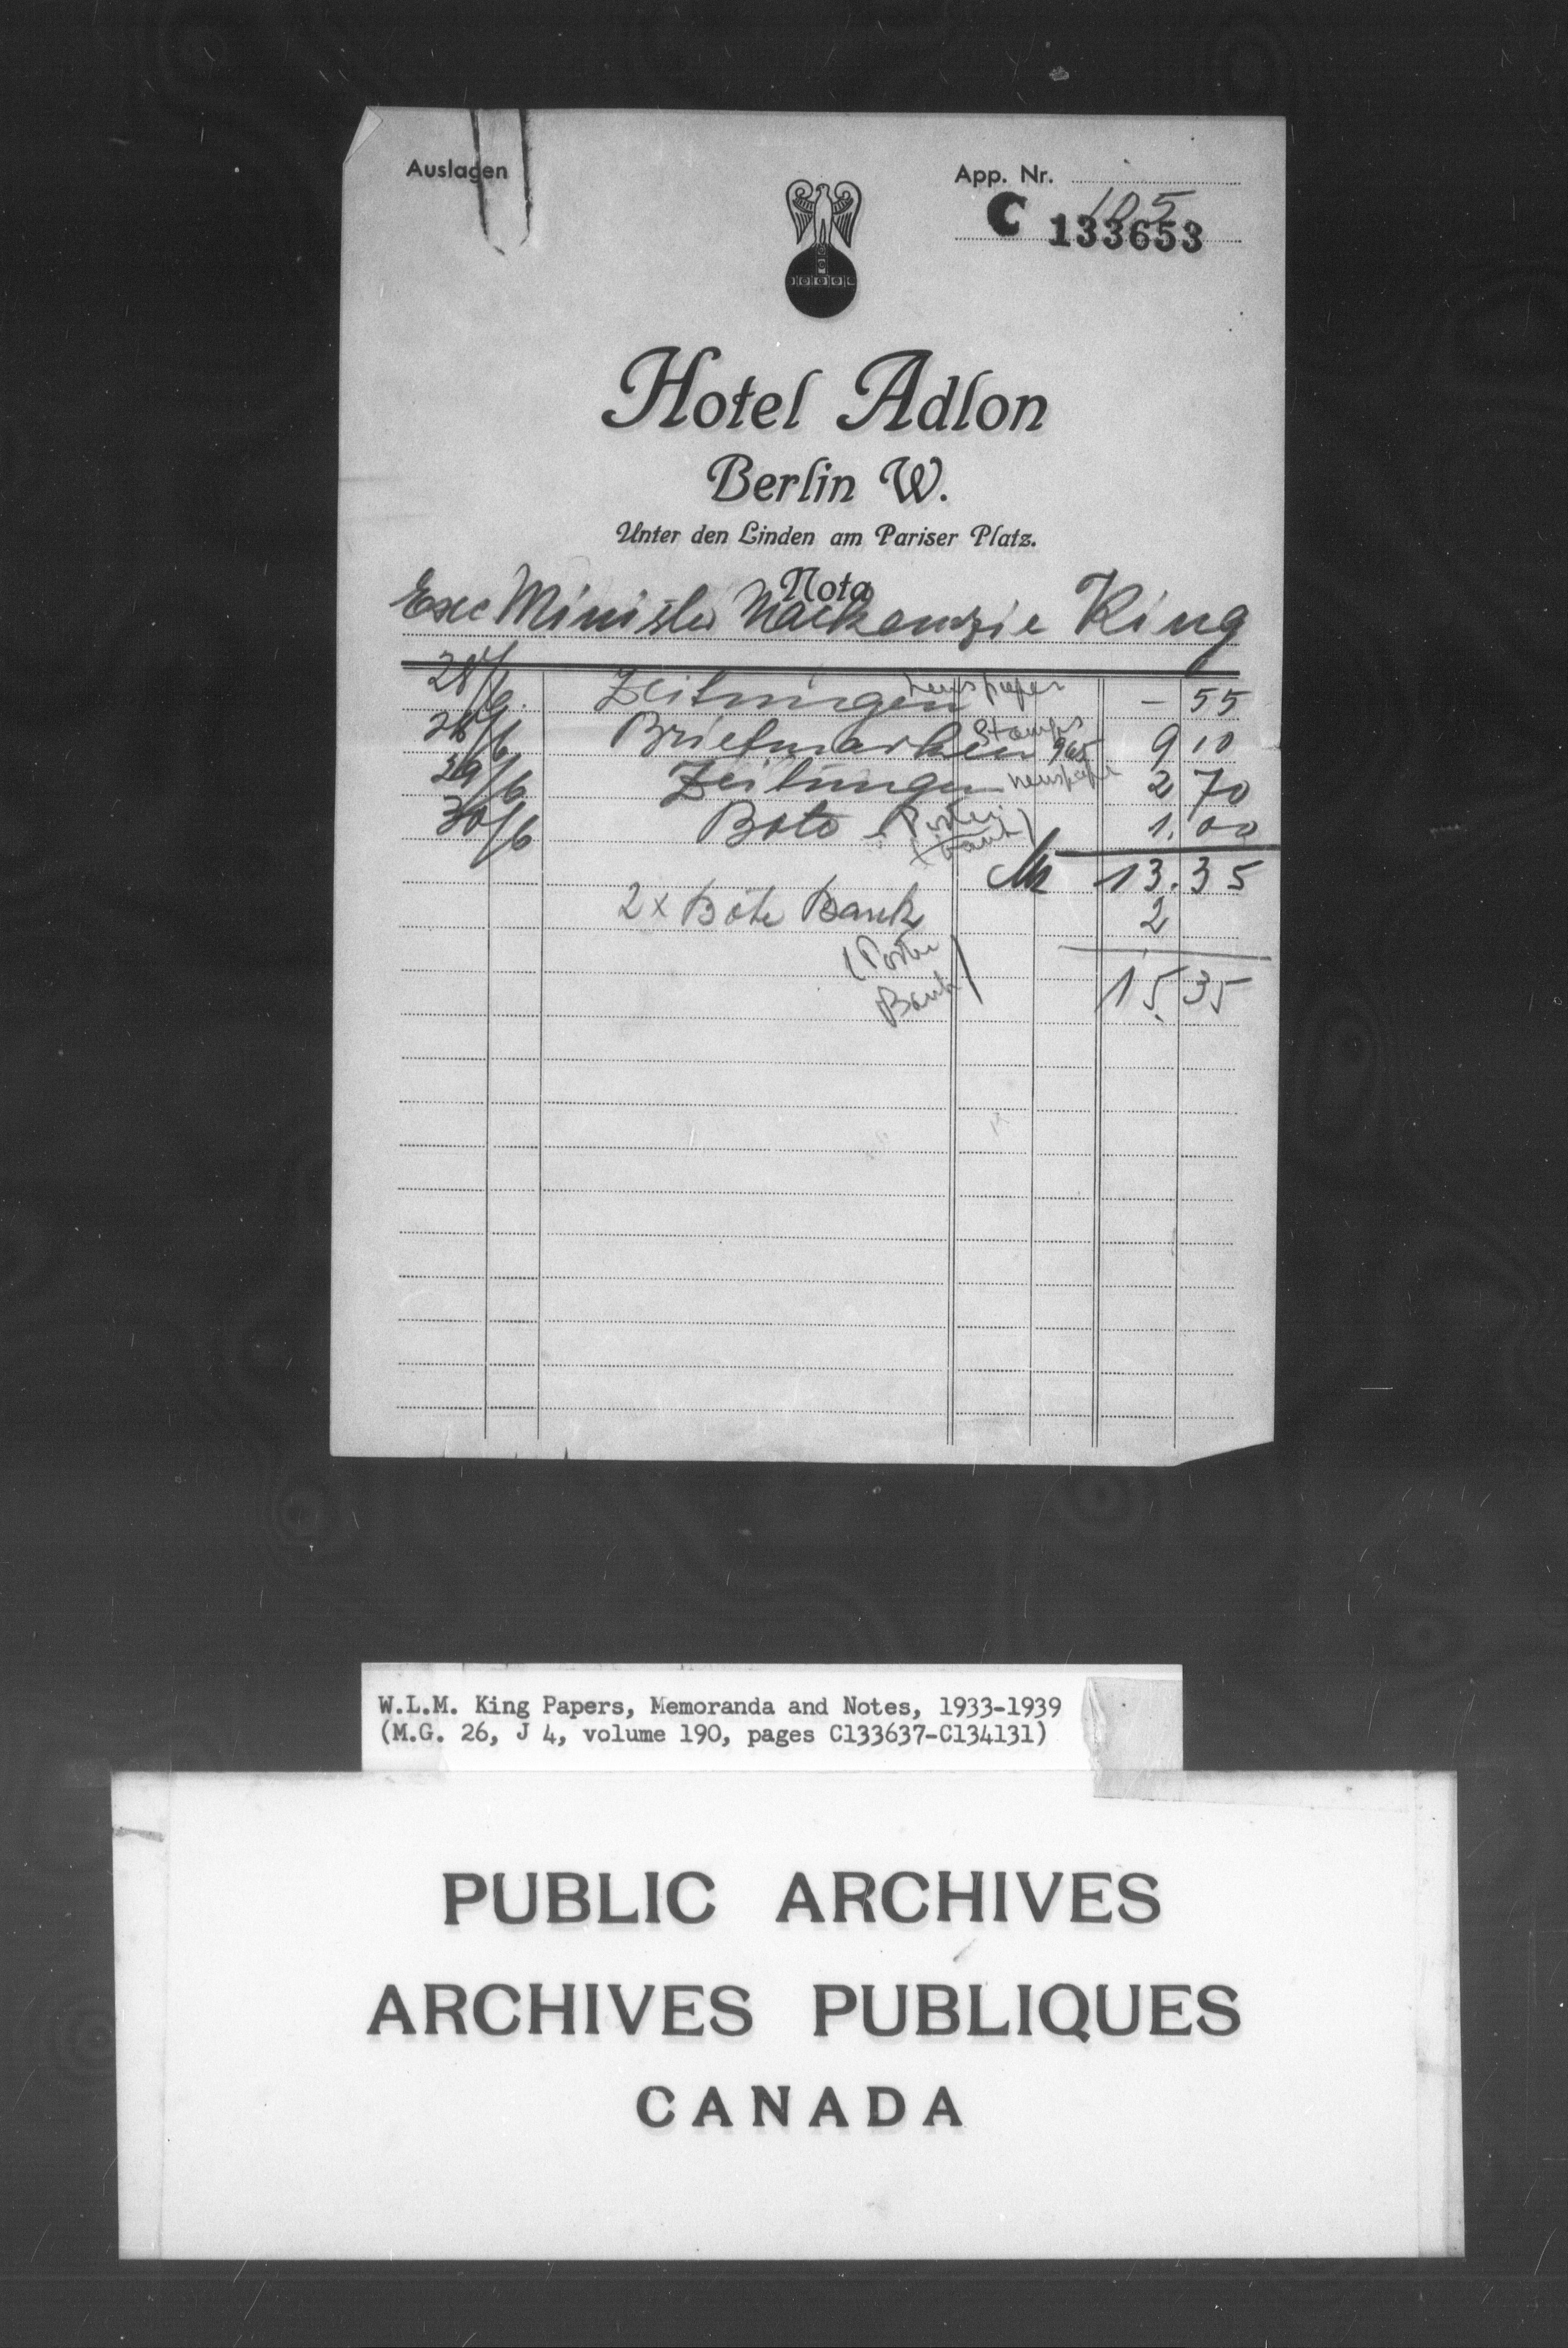 Auslagen
App. Nr. 105
C 133653
Hotel Adlon
Berlin W.
Unter den Linden am Pariser Platz.
Nota
Exc Minister Mackenzie King
28/6. Zeitungen newspaper – 55
28/6 Briefmarken Stamps 965 9 10
29/6 Zeitungen newspaper 2 70
30/6 Bote (Porter 1.00
M 13.35
2 x Bote Bank 2
(Porter
Bank)
15.35
W.L.M. King Papers, Memoranda and Notes, 1933-1939
(M.G. 26, J 4, volume 190, pages C133637-C134131)
PUBLIC ARCHIVES
ARCHIVES PUBLIQUES
CANADA